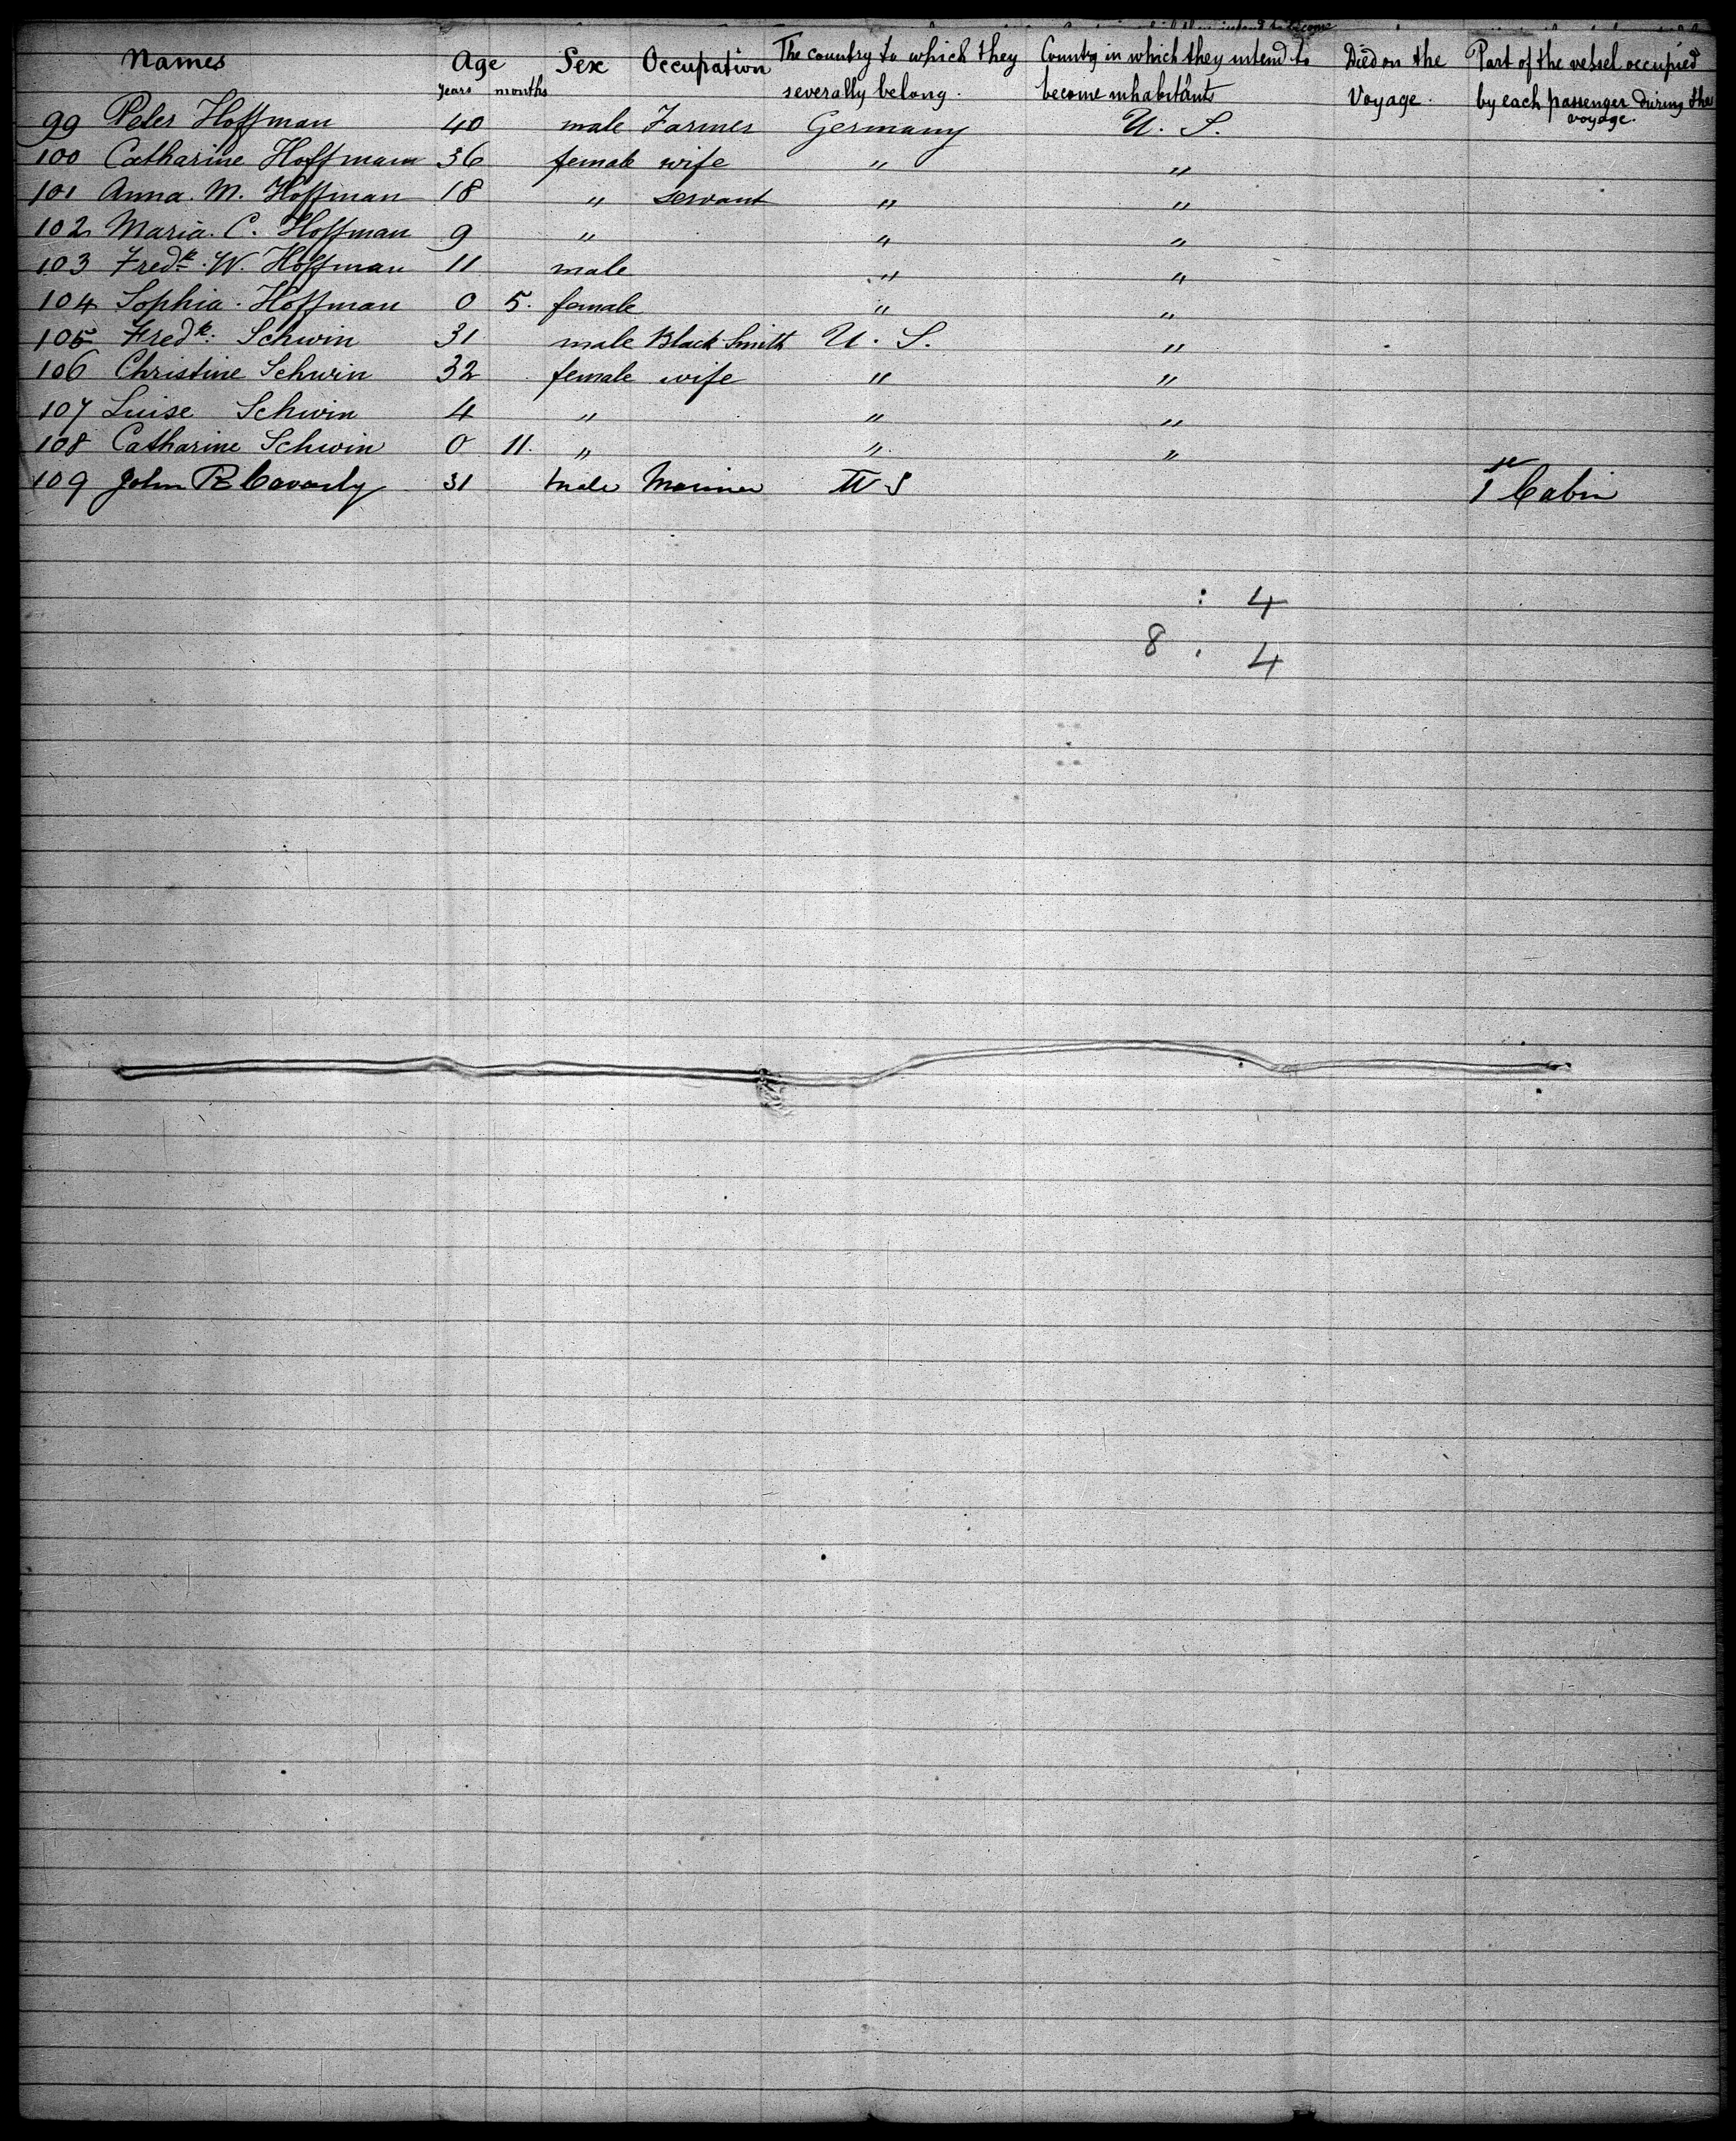 Names Age Sex Occupation The country to which they Country in which they intend to Died on the Part of the vessel occupied
years months severally belong. become inhabitants Voyage. by each passenger during the
voyage.
99 Peter Hoffman 40 male Farmer Germany U. S.
100 Catharine Hoffmann 36 female wife " "
101 Anna. M. Hoffman 18 " servant " "
102 Maria. C. Hoffman 9 " " "
103 Fredk. W. Hoffman 11 male " "
104 Sophia. Hoffman 0 5. female " "
105 Fredk. Schwin 31 male Black Smith U. S. "
106 Christine Schwin 32 female wife " "
107 Luise Schwin 4 " " "
108 Catharine Schwin 0 11. " " "
109 John R 31 male Mariner U S 1st Cabin
: 4
8 . 4